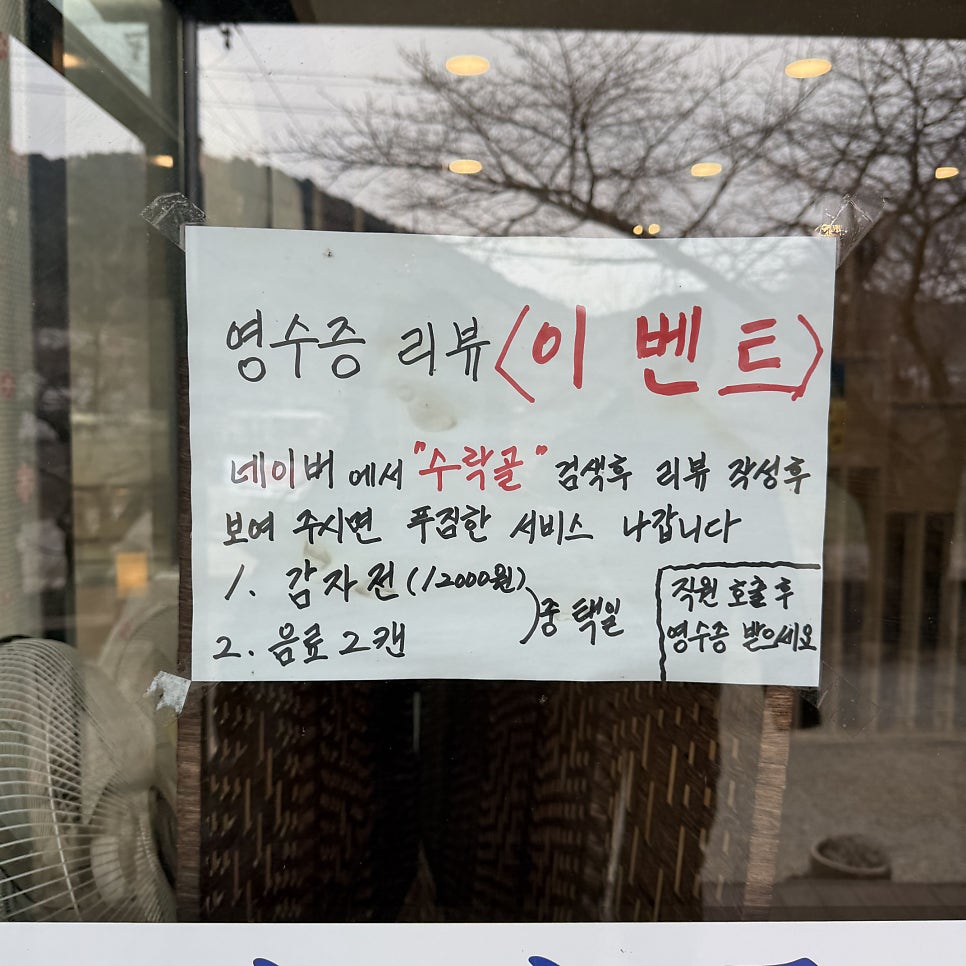 영수증 리뷰 <이벤트>
네이버에서 "수락골" 검색후 리뷰 작성후
보여 주시면 푸짐한 서비스 나갑니다
1. 감자전 (12000원)
2. 음료 2캔
) 중 택일
직원 호출 후
영수증 받으세요